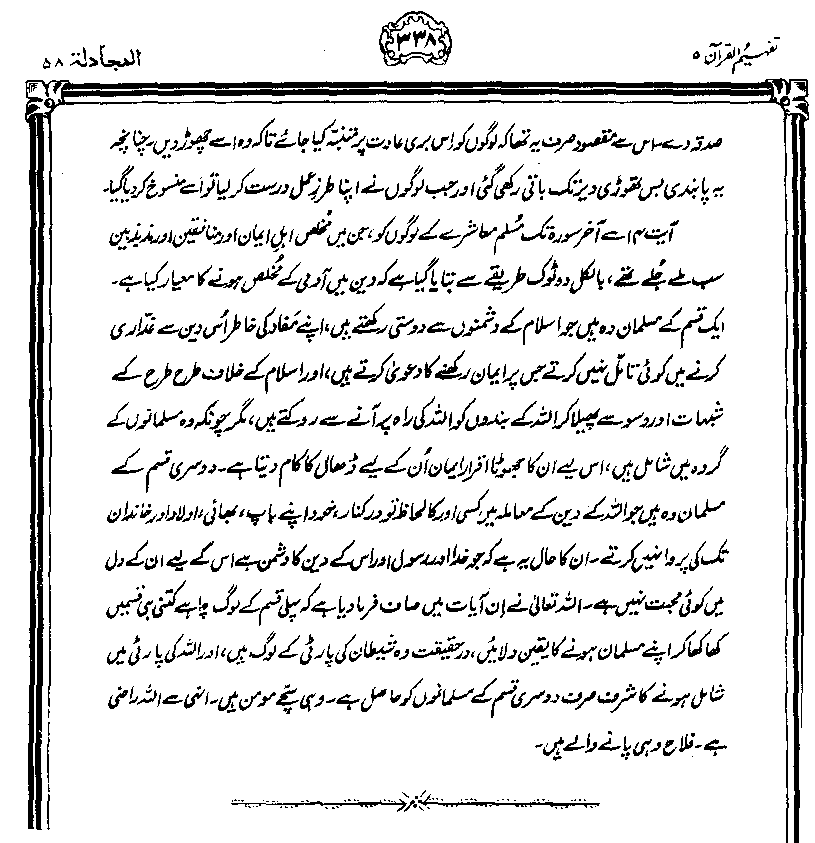 تفہیم القرآن ۵
۳۳۸
المجادلۃ ۵۸
صدقہ دے۔ اس سے مقصود صرف یہ تھا کہ لوگوں کو اس بری عادت پر متنبّہ کیا جائے تاکہ وہ اسے چھوڑ دیں۔ چنانچہ
یہ پابندی بس تھوڑی دیر تک باقی رکھی گئی اور جب لوگوں نے اپنا طرزِ عمل درست کر لیا تو اسے منسوخ کر دیا گیا۔
آیت ۱۴ سے آخر سورۃ تک مُسلم معاشرے کے لوگوں کو، جن میں مُخلص اہلِ ایمان اور منافقین اور مذبذبین
سب ملے جُلے تھے، بالکل دو ٹوک طریقے سے بتایا گیا ہے کہ دین میں آدمی کے مُخلص ہونے کا معیار کیا ہے۔
ایک قسم کے مسلمان وہ ہیں جو اسلام کے دشمنوں سے دوستی رکھتے ہیں، اپنے مَفاد کی خاطر اُس دین سے غدّاری
کرنے میں کوئی تامل نہیں کرتے جس پر ایمان رکھنے کا دعویٰ کرتے ہیں، اور اسلام کے خلاف طرح طرح کے
شبہات اور وسوسے پھیلا کر اللہ کے بندوں کو اللہ کی راہ پر آنے سے روکتے ہیں، مگر چونکہ وہ مسلمانوں کے
گروہ میں شامل ہیں، اس لیے ان کا جھوٹا اقرارِ ایمان اُن کے لیے ڈھال کا کام دیتا ہے۔ دوسری قسم کے
مسلمان وہ ہیں جو اللہ کے دین کے معاملہ میں کسی اور کا لحاظ تو درکنار، خود اپنے باپ، بھائی، اولاد اور خاندان
تک کی پروا نہیں کرتے۔ ان کا حال یہ ہے کہ جو خدا اور رسول اور اس کے دین کا دشمن ہے اس کے لیے ان کے دل
میں کوئی محبت نہیں ہے۔ اللہ تعالیٰ نے اِن آیات میں صاف فرما دیا ہے کہ پہلی قسم کے لوگ چاہے کتنی ہی قسمیں
کھا کھا کر اپنے مسلمان ہونے کا یقین دلائیں، درحقیقت وہ شیطان کی پارٹی کے لوگ ہیں، اور اللہ کی پارٹی میں
شامل ہونے کا شرف صرف دوسری قسم کے مسلمانوں کو حاصل ہے۔ وہی سچّے مومن ہیں۔ انہی سے اللہ راضی
ہے۔ فلاح وہی پانے والے ہیں۔